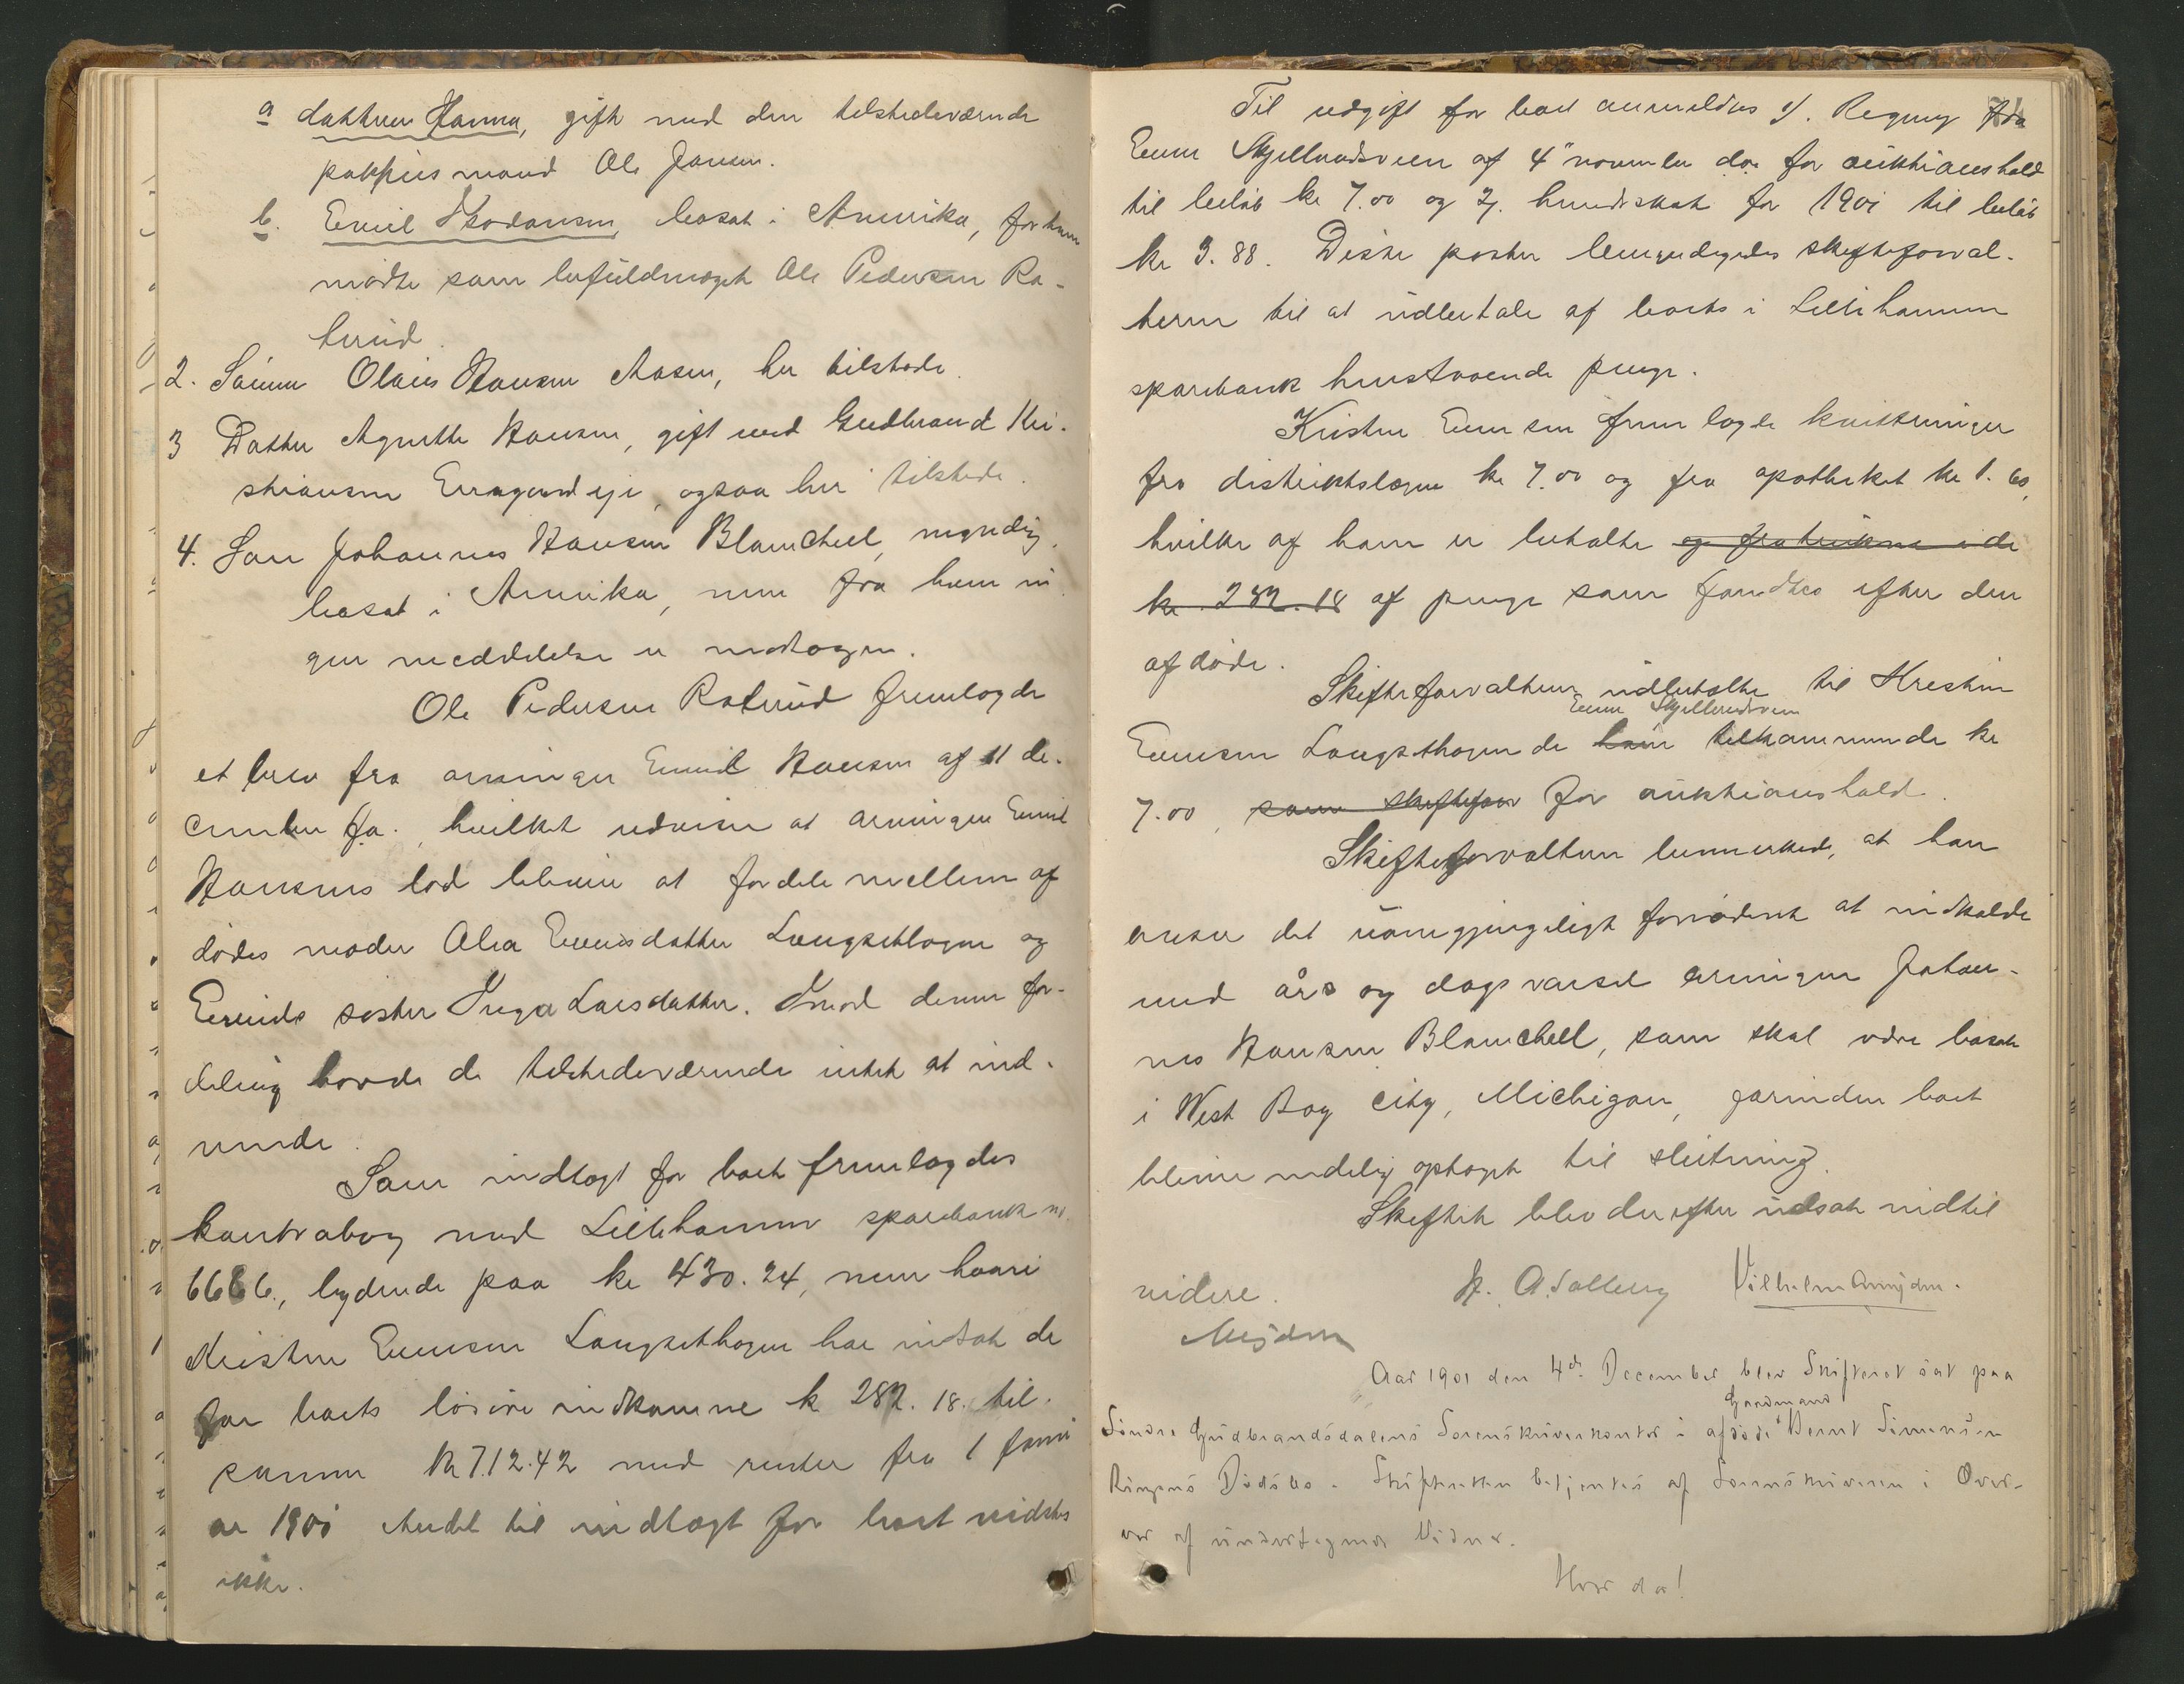 a datteren Hanna, gift med den tilstedeværende
pakhusmand Ole Jansen.
b. Emil bosat i Amerika, for ham
mødte som befuldmægt Ole Pedersen Ro-
terud.
2. Sønnen Olaus Hansen Aasen, her tilstede.
3 Datter Agnethe Hansen, gift med Gudbrand Kri-
stiansen eje, ogsaa her tilstede.
4. Søn Johannes Hansen Blamchell, myndig,
bosat i Amerika, men fra ham in
gen meddelelse er modtagen.
Ole Pedersen Roterud fremlagde
et brev fra arvingen Emil Hansen af 11 de-
cember f.a., hvilket udviser at arvingen Emil
Hansens lod bliver at fordele mellem af
dødes moder Olea Evensdatter Langsethagen og
Emils søster Inga Larsdatter. Imod denne for-
deling havde de tilstedeværende intet at ind-
vende.
Som indtægt for boet fremlagdes
kontrabog med Lillehammer sparebank no.
6686, lydende paa kr 430.24, men hvori
Kristen Evensen Langsethagen har indsat de
for boets løsøre indkomne k 282.18. til-
sammen kr 712.42 med renter fra 1 janu
ar 1901 Andet til indtægt for boet vidstes
ikke.
Til udgift for boet anmeldtes 1/. Regning fra
Even Skjellerudsveen af 4" november d.a. for auktionshold
til beløb kr 7.00 og 2/. hundeskat for 1901 til beløb
kr 3.88. Disse poster bemyndigedes skifteforval-
teren til at udbetale af boets i Lillehammer
sparebank henstaaende penge.
Kristen Evensen fremlagde kvitteringer
fra distriktslægen kr 7.00 og fra apotheket kr 1.60,
hvilke af ham er betalte og fratrukne i de
kr. 282.18 af penge som fandtes efter den
afdøde.
Skifteforvalteren udbetalte til Kristen
Even Skjellerudsveen
Evensen Langsethagen de ham tilkommende kr
7.00, som skiftefor for auktionshold.
Skifteforvalteren bemerkede, at han
anser det uomgjængeligt fornødent at indkalde
med års og dags varsel arvingen Johan-
nes Hansen Blamchell, som skal være bosat
i West Bay City, Michigan, forinden boet
bliver endelig optaget til slutning.
Skiftet blev derefter udsat indtil
videre. H. A. Solberg Vilhelm
Aar 1901 den 4de December blev Skifteret sat paa
Gaardmand
Søndre Gudbrandsdalens Sorenskriverkontor i afdøde Bernt Simensen
Ringens Dødsbo. Skifteretten betjentes af Sorenskriveren i Over-
vær af undertegnede Vidner.
Hvor da!